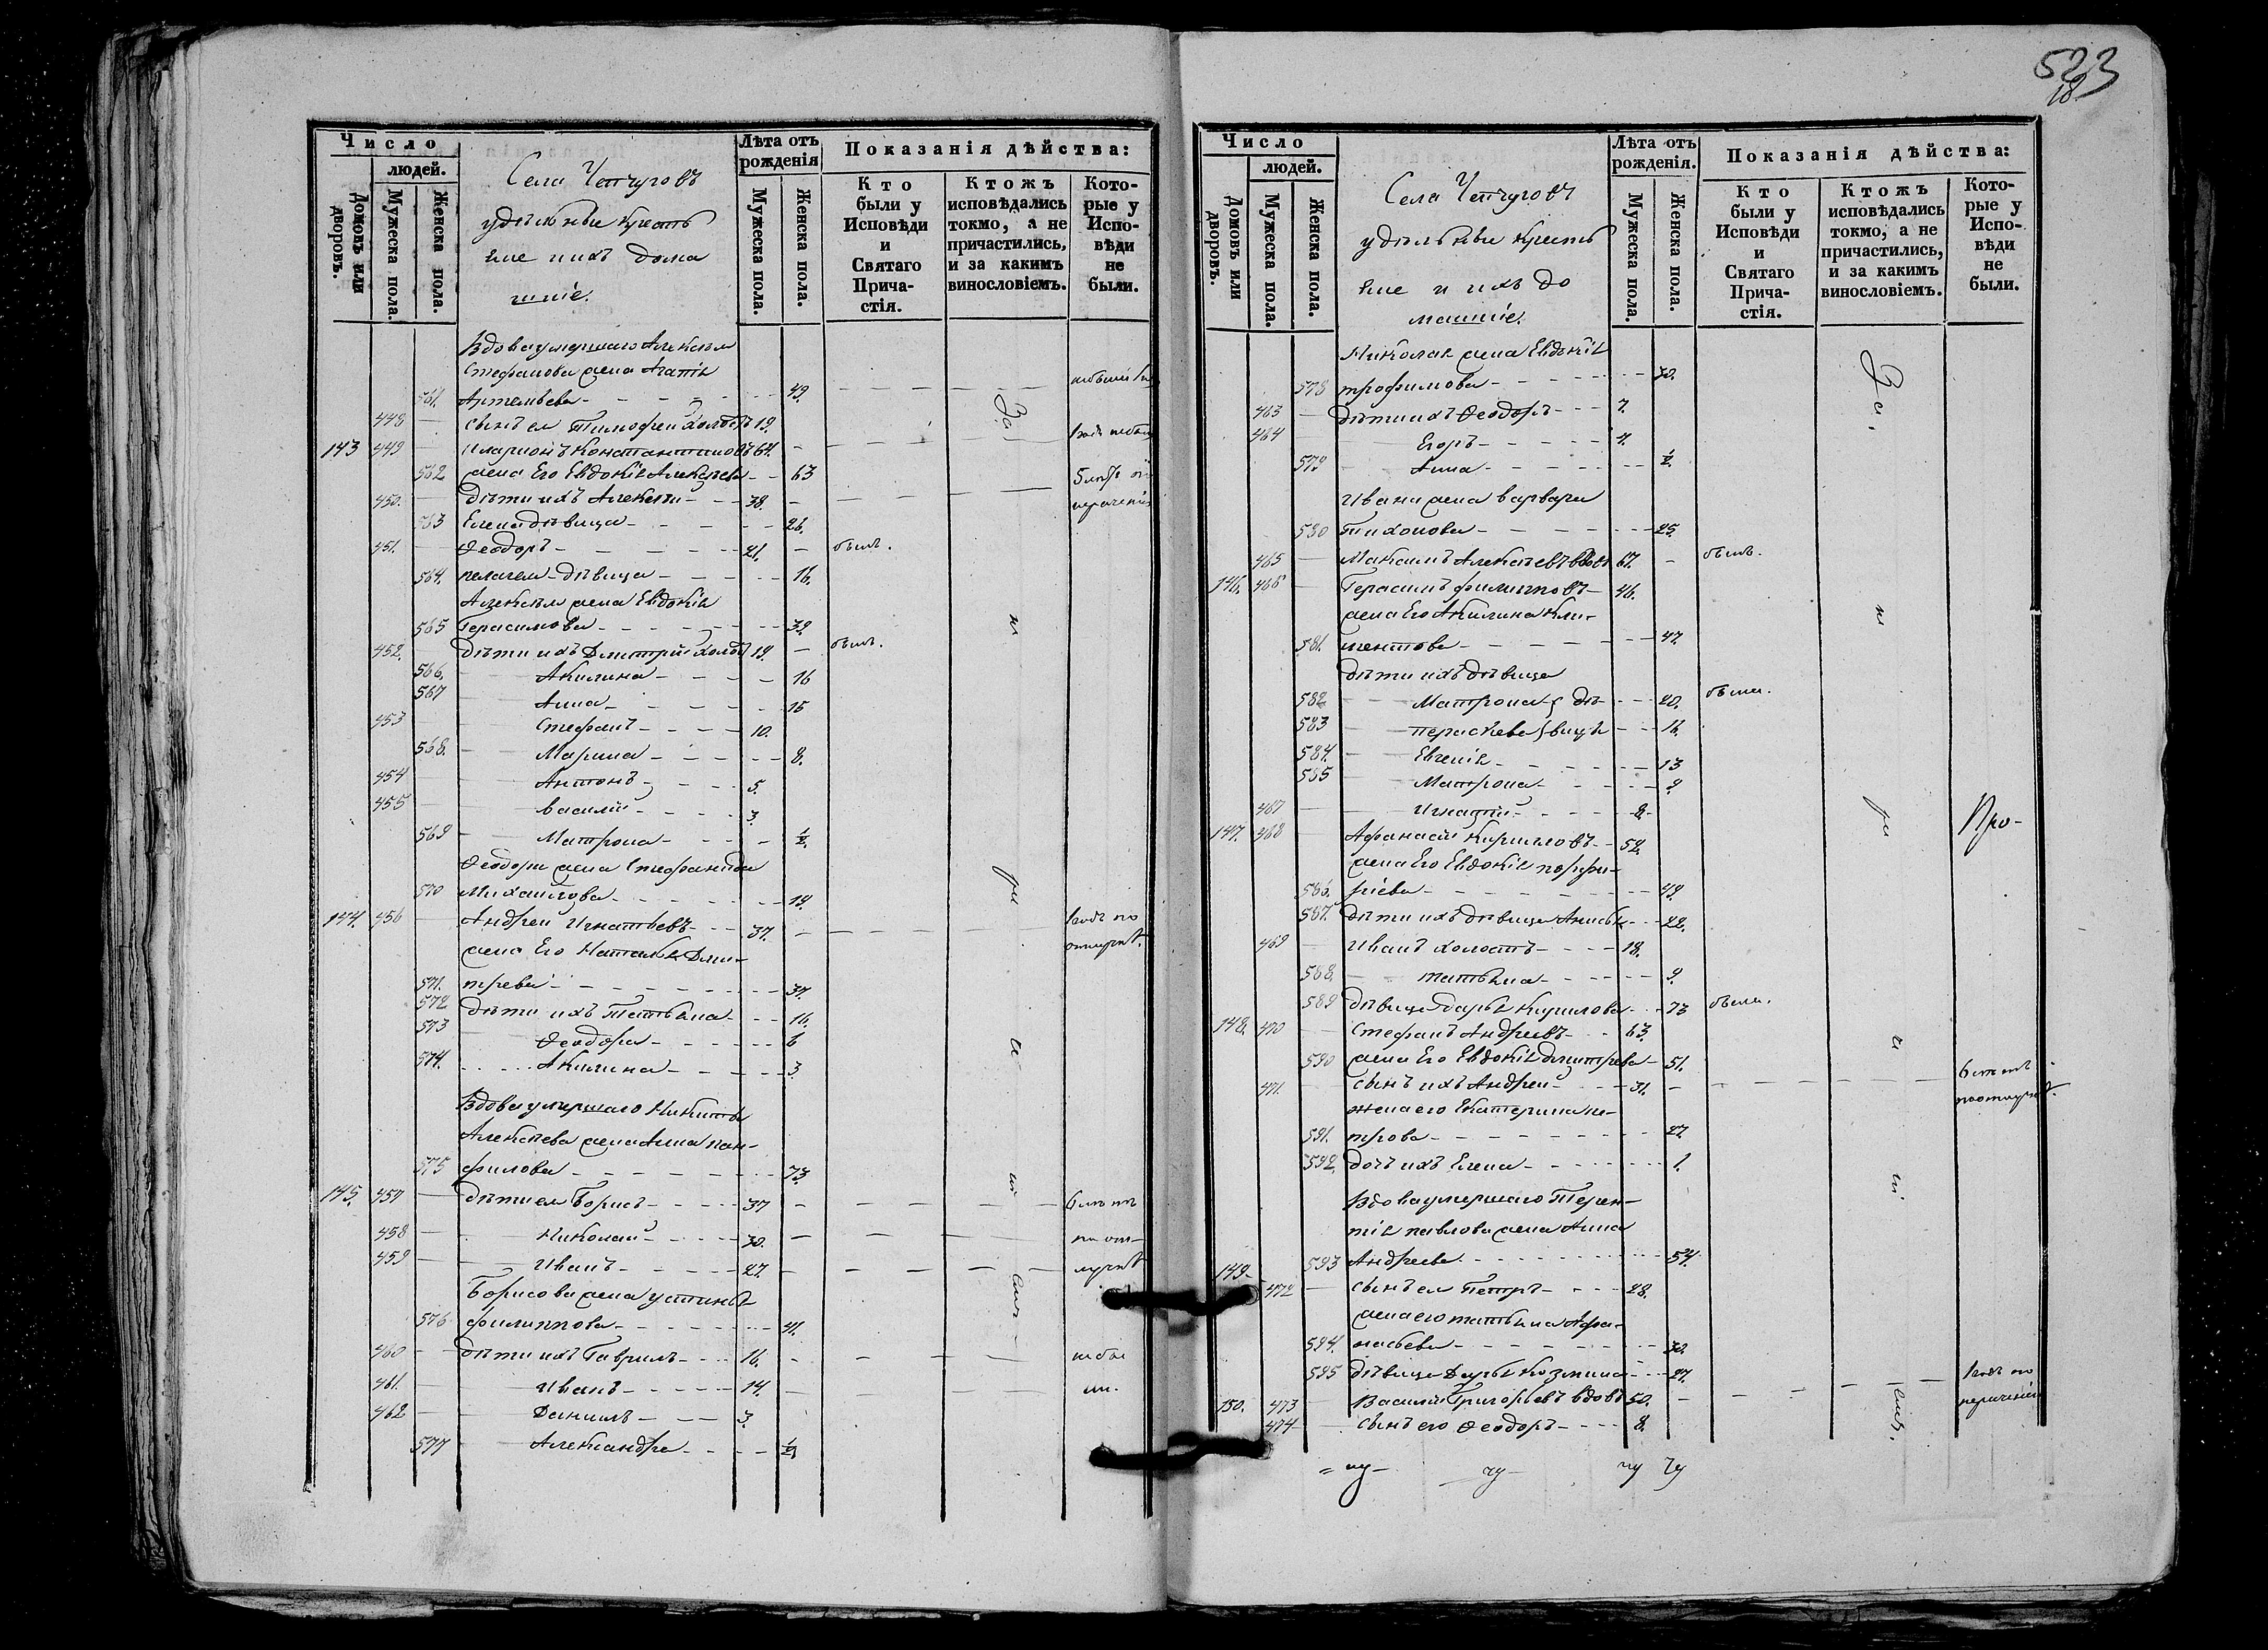 523
18.
Число
людей.
Домовъ или дворовъ.
Мужеска пола.
Женска пола.
Села Чепчуговъ
удѣльные кресть
яне и ихъ дома
шніе.
Лѣта отъ рожденія
Мужеска пола.
Женска пола.
Показанія дѣйства:
Кто были у Исповѣди и Святаго Прича- стія.
Ктожъ исповѣдались токмо, а не причастились, и за какимъ винословіемъ.
Кото- рые у Испо- вѣди не были.
Вдова умершаго Алексѣя
Стефанова жена Агапія
561. Артемьева - 49.
448 сынъ ея Тимофей холостъ 19.
143 449 Иларіонъ Константиновъ 64.
562 жена Его Евдокія Алексѣева - 63
450. дѣти ихъ Алексѣй - 38.
563 Елена дѣвица - 26.
451. Ѳеодоръ - 21. - былъ.
564. пелагея дѣвица - 16.
Алексѣя жена Евдокія
565 Герасимова - 39.
452. дѣти ихъ Дмитрій холостъ 19. - былъ.
566. Акилина - 16
567 Анна - 15
453 Стефанъ - 10.
568. Марина - 8.
454 Антонъ - 5.
455 Василій - 3.
569 Матрона - ½.
Ѳеодора жена Стефанида
570 Михаилова - 19.
144. 456 Андрей Игнатьевъ - 37. - 1 годъ по
отлучкѣ.
жена Его Наталья Дми-
571. трева - 37.
572 дѣти ихъ Татьяна - 16.
573 Ѳеодора - 6
574. Акилина - 3.
Вдова умершаго Никиты
Алексѣева жена Анна пан-
575 филова - 73.
145. 457 дѣти ея Борисъ - 37 - 6 лѣтъ
458 Николай - 30. - по от-
459 Иванъ - 27. - лучкѣ
Борисова жена устинья
576 филиппова - 41.
460 дѣти ихъ Гаврилъ - 16. - небы
461. Иванъ - 14. - ли.
462 Даниилъ - 3.
577 Александра - ½
За
н
ри
и
ш
Число
людей.
Домовъ или дворовъ.
Мужеска пола.
Женска пола.
Села Чепчуговъ
удѣльные кресть
яне и ихъ до
машніе.
Лѣта отъ рожденія.
Мужеска пола.
Женска пола.
Показанія дѣйства:
Кто были у Исповѣди и Святаго Прича- стія.
Ктожъ исповѣдались токмо, а не причастились, и за какимъ винословіемъ.
Кото- рые у Испо- вѣди не были.
Николая жена Евдокія
578 трофимова - 30.
463 дѣти ихъ Ѳеодоръ - 7.
464 Егоръ - 4.
579 Анна - ½.
Ивана жена варвара
580 тихонова - 25.
465 Максимъ Алексѣевъ вдовъ 67. - былъ.
146. 466 Герасимъ филипповъ - 46.
жена Его Акилина Кли-
581. ментова - 47.
дѣти ихъ дѣвица
582 Матрона дѣ - 20. были.
583 параскева вицы - 16.
584. Евгенія - 13
585 Матрона - 9.
467 Игнатій - 2.
147. 468 Афанасій Кириловъ - 52.
жена Его Евдокія порфи-
586. ріева - 49.
587. дѣти ихъ дѣвица Анисья - 22.
469 Иванъ холостъ - 18.
588. татьяна - 9.
589 дѣвица дарья Кирилова - 73 была.
148. 470 Стефанъ Андреевъ - 63.
590 жена Его Евдокія дмитрева - 51.
471. сынъ ихъ Андрей - 31. - 6 лѣтъ
по отлучкѣ.
жена его Екатерина пе-
591. трова - 27.
592. дочь ихъ Елена - 1.
Вдова умершаго Терен-
тія павлова жена Анна
593 Андреева - 54.
149. 472 сынъ ея Петръ - 28.
жена его татьяна Афа-
594. насьева - 30.
595 дѣвица Дарья козмина - 27.
150. 473 Василій Григорьевъ вдовъ 50. - 1 годъ по
нераченію
474 сынъ его Ѳеодоръ - 8.
За.
н
ри
и
ш
Про-